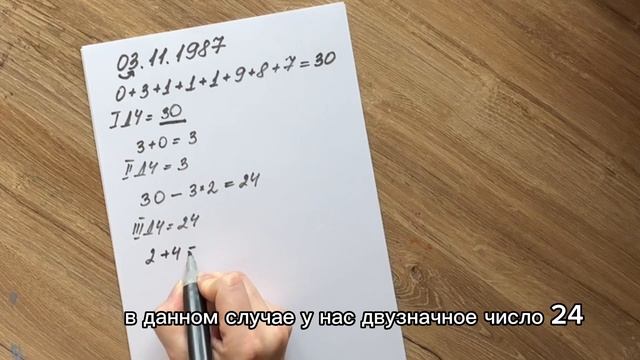 03.11.1987
0+3+1+1+1+9+8+7=30
I ДЧ = 30
3+0=3
II ДЧ = 3
30 - 3*2 = 24
III ДЧ = 24
2+4=
в данном случае у нас двузначное число 24